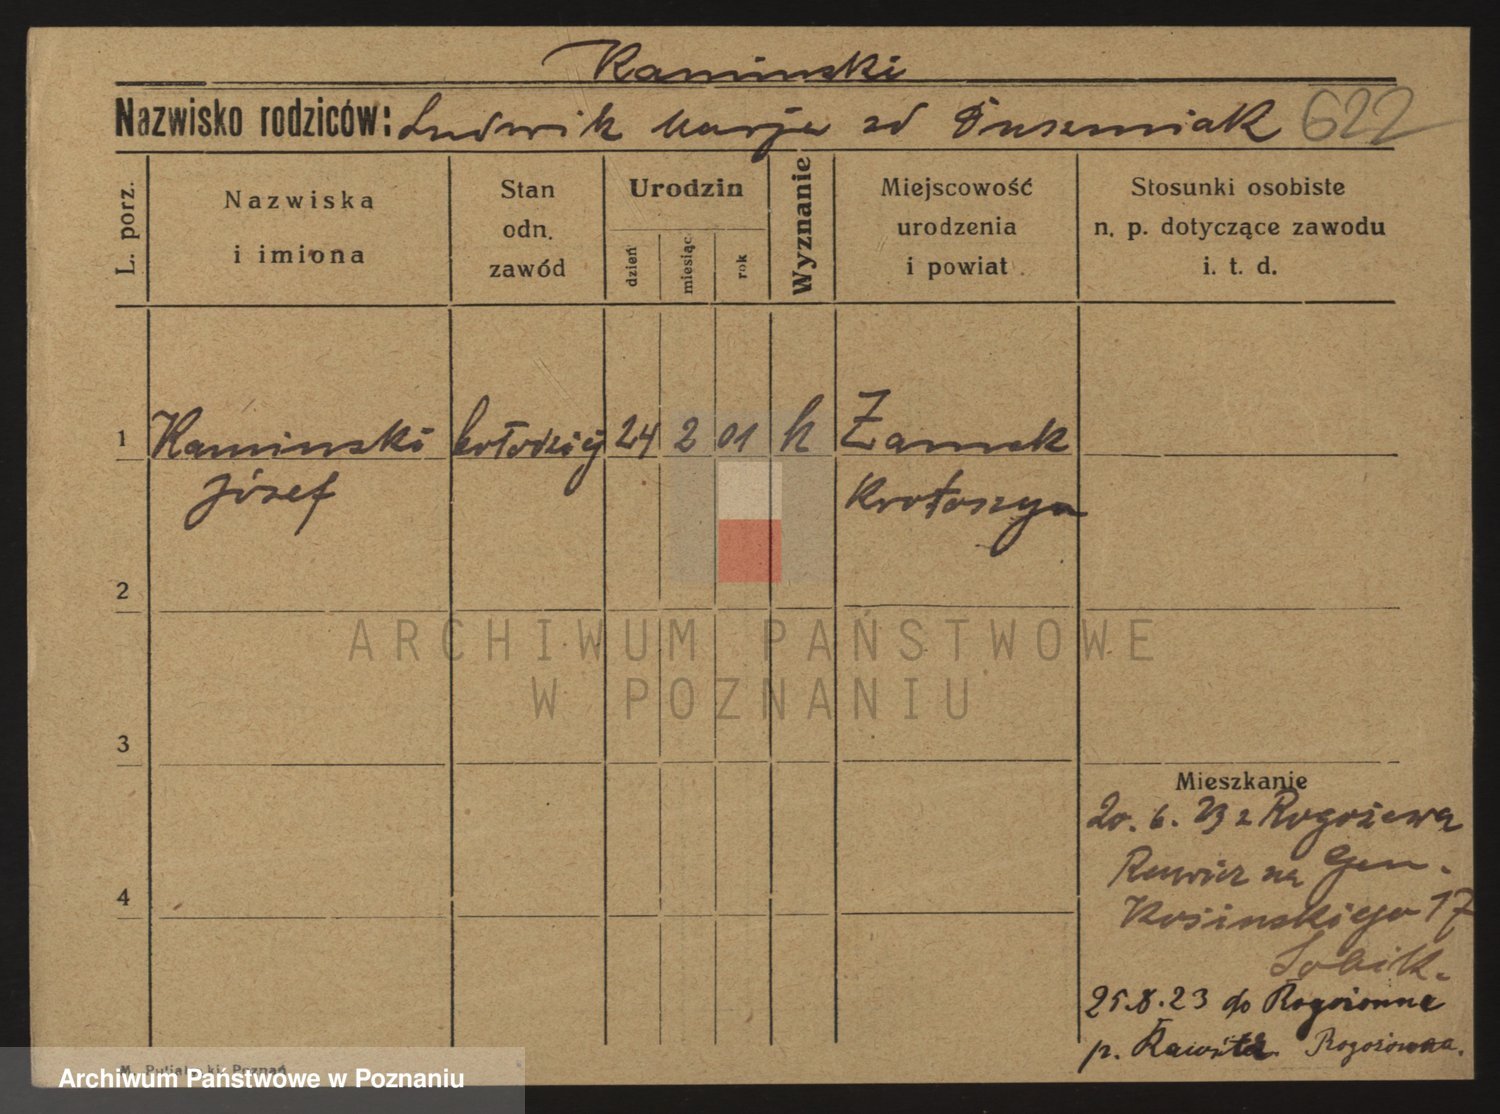 Kaminski
Nazwisko rodziców: Ludwik Marja zd 622
L. porz.
Nazwiska i imiona
Stan odn. zawód
Urodzin
dzień
miesiąc
rok
Wyznanie
Miejscowość urodzenia i powiat
Stosunki osobiste n. p. dotyczące zawodu i. t. d.
1 Kaminski kołodziej 24 2 01 k Zamek
Józef Krotoszyn
2
ARCHIWUM PAŃSTWOWE
W POZNANIU
3
Mieszkanie
20. 6. 23 z Rogożewa
4
Rawicz na Gen.
Kosinskiego 17
Sobik.
25.8.23 do
p. Rawicz
Poznań
Archiwum Państwowe w Poznaniu